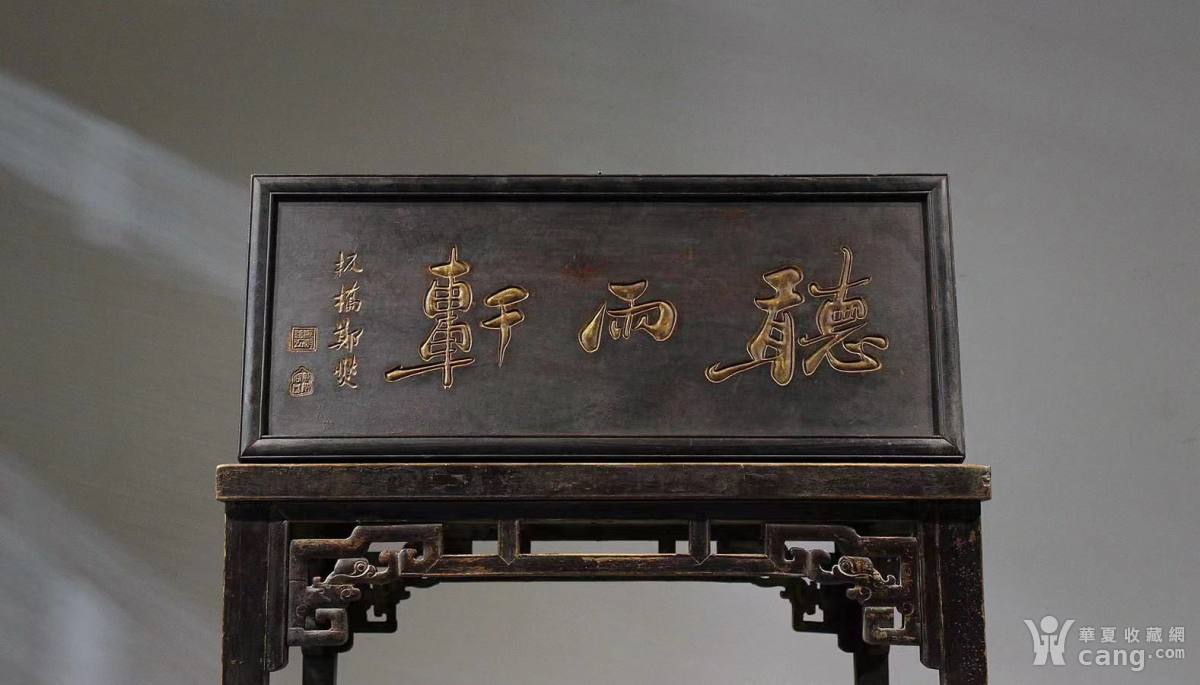 聽雨軒
板橋鄭燮
華夏收藏網
cang.com